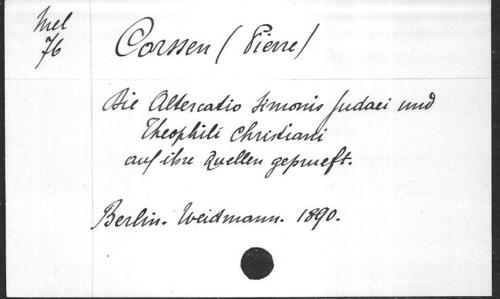 Mel
76
Corssen (Pierre)
Die Altercatio Simonis Judaei und
Theophili Christiani
auf ihre Quellen geprueft.
Berlin. Weidmann. 1890.